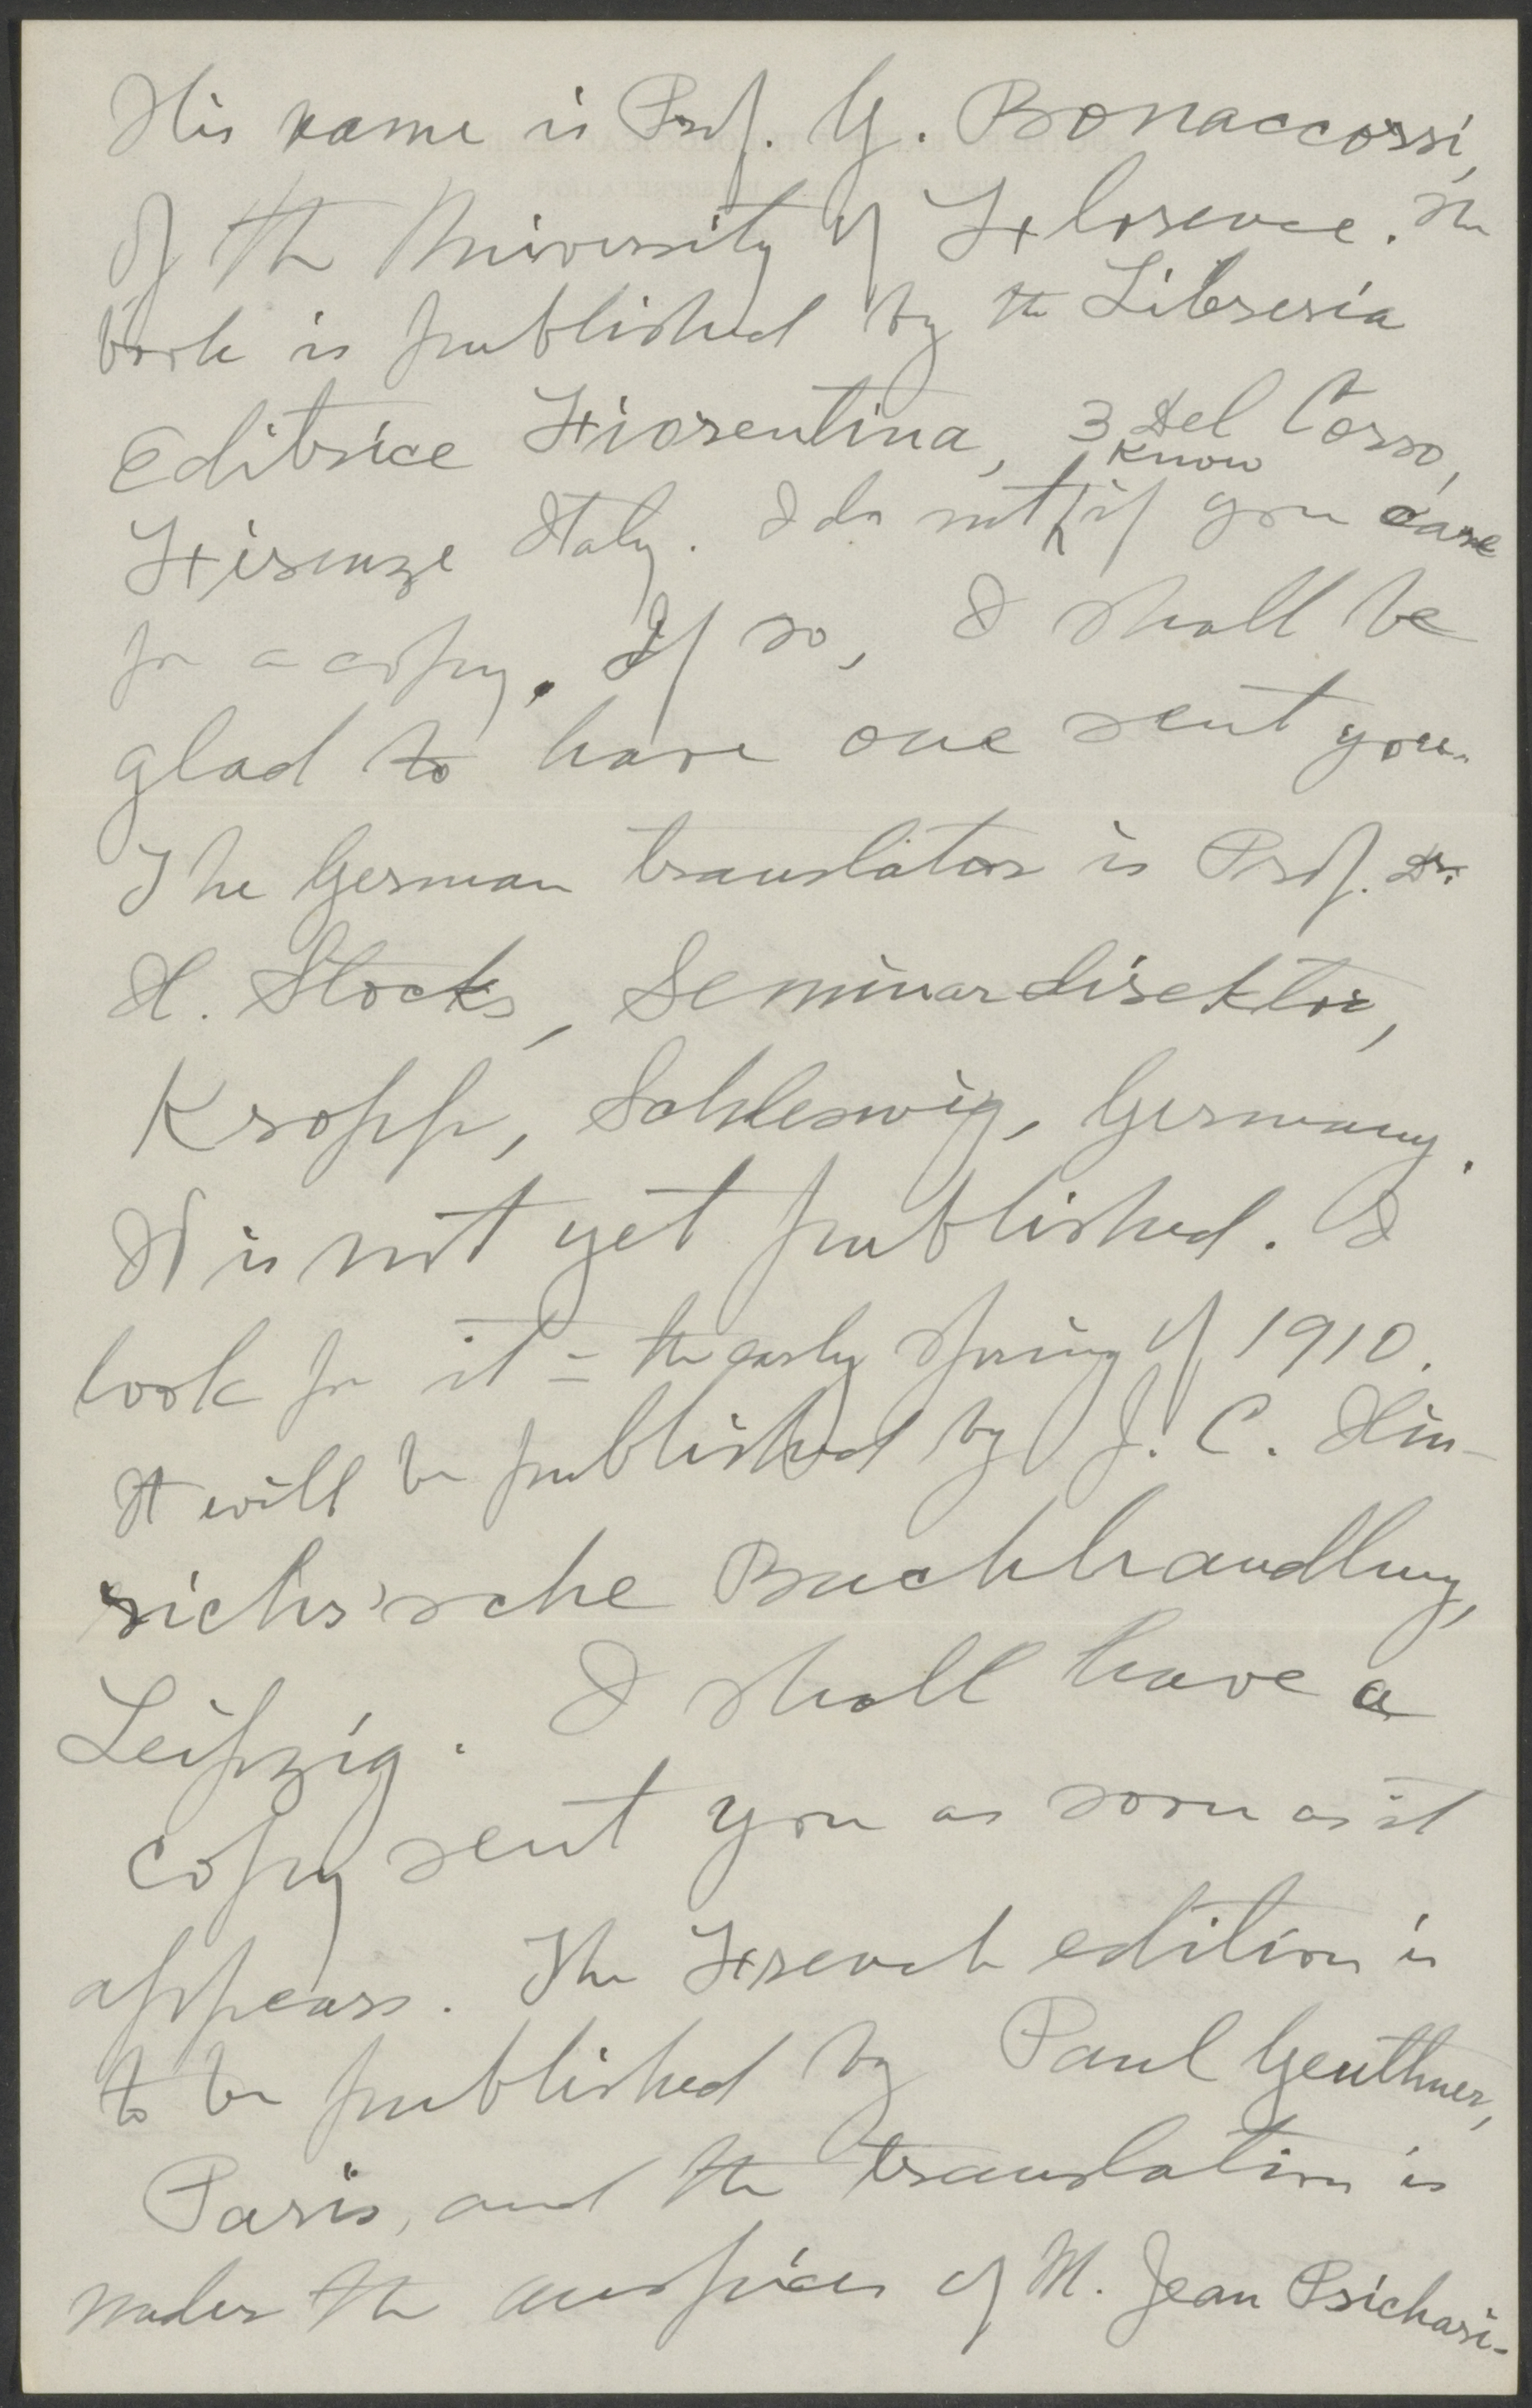 His name is Prof. G. Bonaccorsi,
of the University of Florence. The
book is published by the Libreria
Editrice Fiorentina, 3 Del Corso,
Firenze Italy. I do not know if you care
for a copy. If so, I shall be
glad to have one sent you.
The German translator is Prof. Dr.
H. Stocks, Seminardirektor,
Kropp, Schleswig, Germany.
It is not yet published. I
look for it in the early spring of 1910.
It will be published by J. C. Hin-
richs'sche Buchhandlung,
Leipzig. I shall have a
copy sent you as soon as it
appears. The French edition is
to be published by Paul Geuthner,
Paris, and the translation is
under the auspices of M. Jean Psichari-